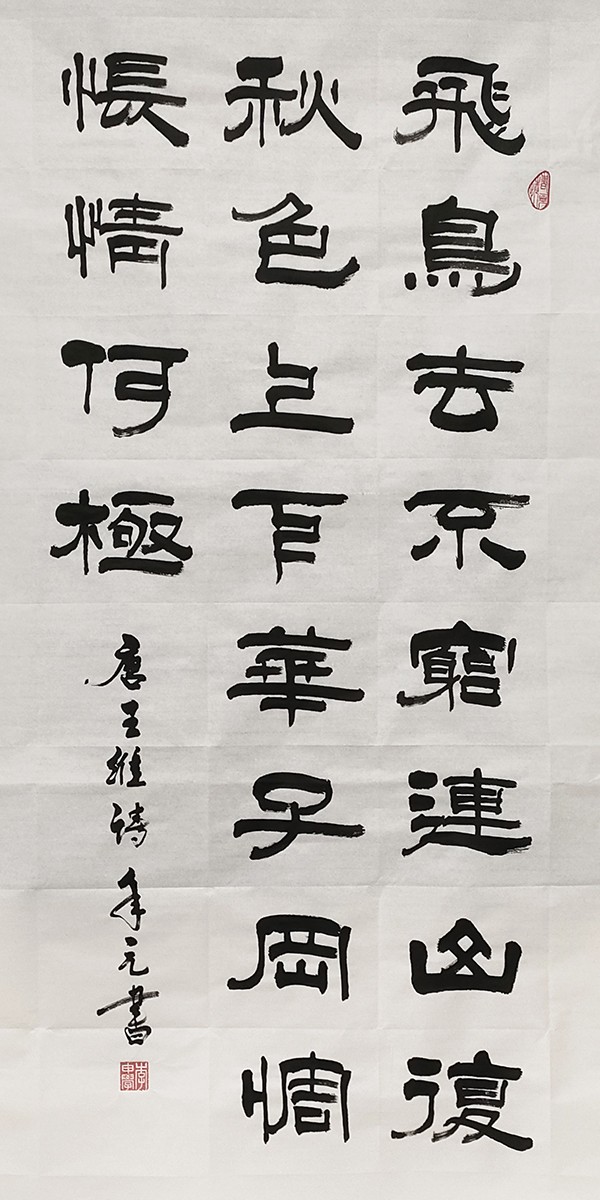 飛鳥去不窮連山復
秋色上下華子岡惆
悵情何極
唐王維詩 元書